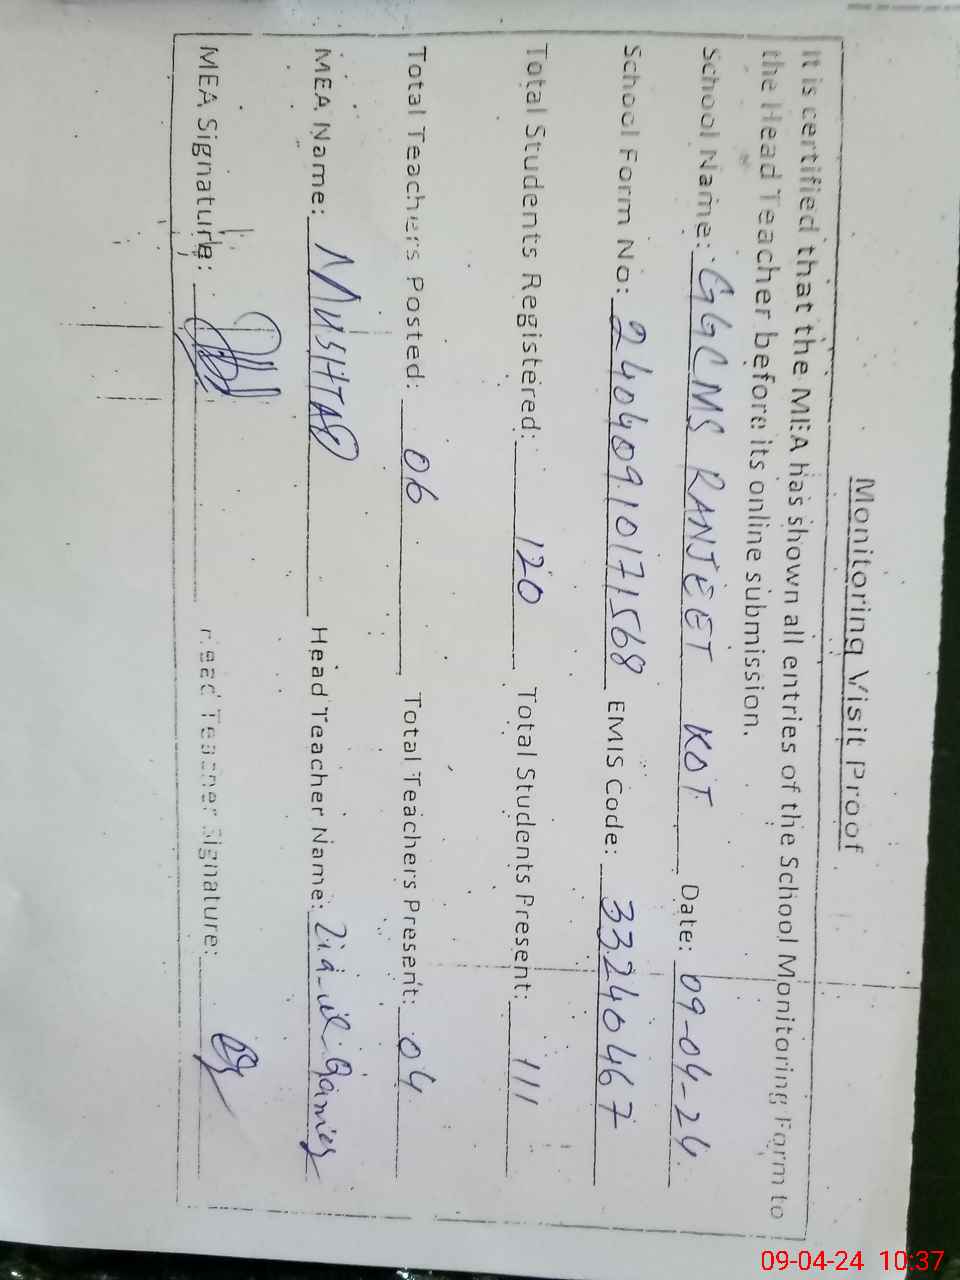 Monitoring Visit Proof
It is certified that the MEA has shown all entries of the School Monitoring Form to
the Head Teacher before its online submission.
School Name: GGCMS RANJEET KOT Date: 09-04-24
School Form No: 24040910171568 EMIS Code: 33240467
Total Students Registered: 120 Total Students Present: 111
Total Teachers Posted: 06 Total Teachers Present: 04
MEA Name: MUSHTAQ Head Teacher Name: Zia-ul-
MEA Signature: Head Teacher Signature:
09-04-24 10:37